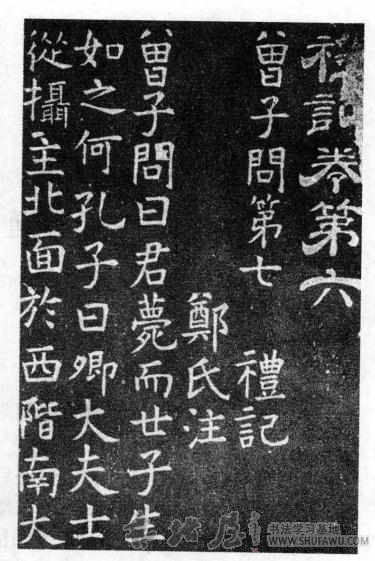 禮記卷第六
曾子問第七 禮記
鄭氏注
曾子問曰君薨而世子生
如之何孔子曰卿大夫士
從攝主北面於西階南大
书法学习基地
WWW.SHUFAWU.COM